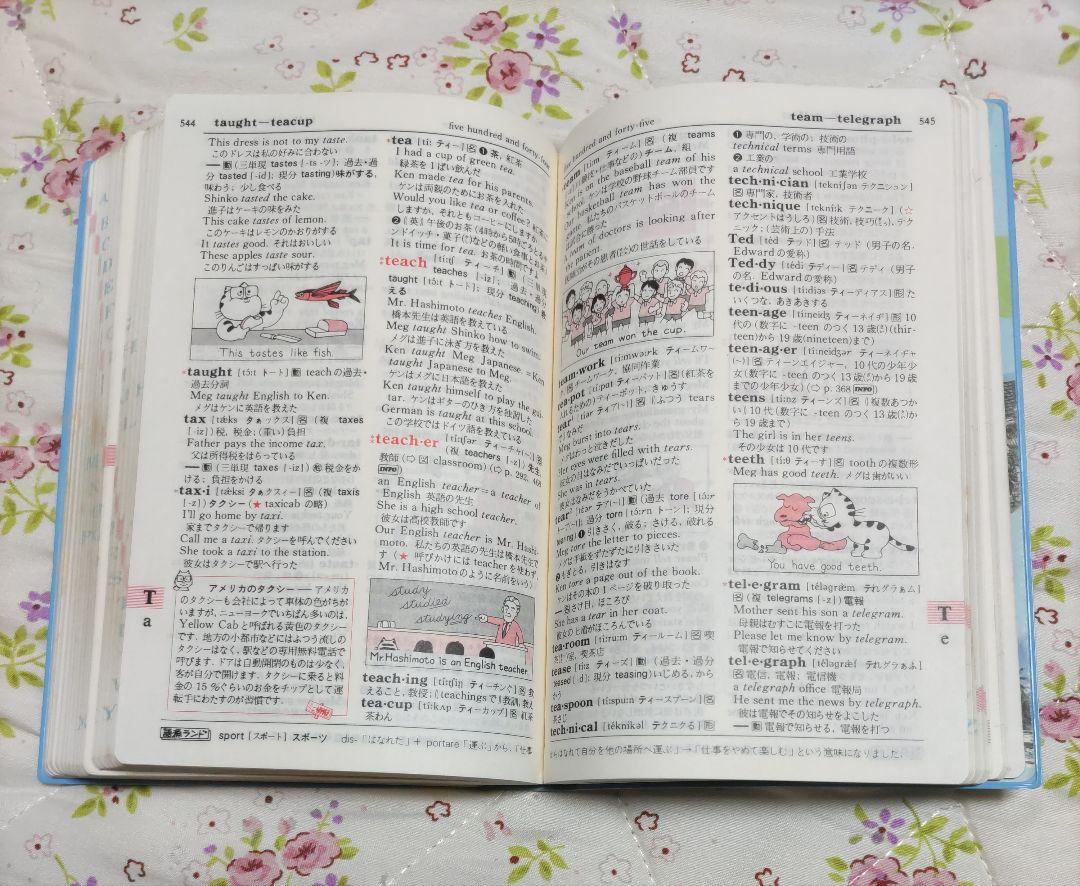 544 taught—teacup
five hundred and forty-
This dress is not to my taste.
このドレスは私の好みに合わない
味わう; 少し食べる
Shinko tasted the cake.
進子はケーキの味をみた
This cake tastes of lemon.
このケーキはレモンのかおりがする
It tastes good. それはおいしい
These apples taste sour.
このりんごはすっぱい味がする
This tastes like fish.
*taught [tɔ́ːt トート] 動 teachの過去・
過去分詞
Meg taught English to Ken.
メグはケンに英語を教えた
tax [tæks タぁックス] 名 (複 taxes
[-iz]) 税, 税金; (重い) 負担
Father pays the income tax.
父は所得税をはらっている
—動 (三単現 taxes [-iz]) 他 税金をか
ける; 負担をかける
*tax·i [tæksi タぁクスィー] 名 (複 taxis
[-z]) タクシー (★ taxicab の略)
I'll go home by taxi.
家までタクシーで帰ります
Call me a taxi. タクシーを呼んでください
She took a taxi to the station.
彼女はタクシーで駅へ行った
アメリカのタクシー — アメリカ
のタクシーも会社によって車体の色がちが
いますが, ニューヨークでいちばん多いのは,
Yellow Cab と呼ばれる黄色のタクシー
です. 地方の小都市などにはふつう流しの
タクシーはなく, 駅などの専用無料電話で
呼びます. ドアは自動開閉のものは少なく,
客が自分で開けます. タクシーに乗ると料
金の 15 %ぐらいのお金をチップとして運
転手にわたすのが習慣です.
T
a
*tea [tíː ティー] 名 ❶ 茶, 紅茶
I had a cup of green tea.
緑茶を1ぱい飲んだ
Ken made tea for his parents.
ケンは両親のためにお茶を入れた
Would you like tea or coffee,
It is time for tea. お茶の時間です
teach [tíːtʃ ティーチ] 動
teaches [-iz];
taught [tɔ́ːt トート]; 現分 teaching)
える
Mr. Hashimoto teaches English.
橋本先生は英語を教えている
Meg taught Shinko how to swim.
メグは進子に泳ぎ方を教えた
Ken taught Meg Japanese. =Ken
taught Japanese to Meg.
ケンはメグに日本語を教えた
Ken taught himself to play the gui-
tar. ケンはギターのひき方を独習した
German is taught at this school.
この学校ではドイツ語を教えている
teach·er [tíːtʃər ティーチャ〜] 名
(複 teachers [-z]) 先生,
教師 (⇨ 図 classroom) (⇨ p. 293, 468
INFO)
an English teacher=a teacher of
English 英語の先生
She is a high school teacher.
彼女は高校教師です
Our English teacher is Mr. Hashi-
moto. 私たちの英語の先生は橋本先生で
す (★ 呼びかけには teacher を使わず,
Mr. Hashimoto のように名前をいう)
study
studied
studying
Mr. Hashimoto is an English teacher.
teach·ing [tíːtʃiŋ ティーチング] 名 教
えること, 教授;
tea·cup [tíːkʌp ティーカップ] 名 紅茶
茶わん
sport [スポート] スポーツ dis-「はなれた」+ portare「運ぶ」から, 「仕事
team—telegraph 545
hundred and forty-five
is on the baseball team of his
school.
basketball team has won the
team of doctors is looking after
the patient.
その患者の世話をしている
Our team won the cup.
team·work [tíːmwəːrk ティームワー
チームワーク, 協同作業
tea·pot [tíːpɑt ティーパット] 名 (紅茶を
入れるための) ティーポット, きゅうす
Meg burst into tears.
メグはわっと泣きだした
Her eyes were filled with tears.
彼女の目はなみだでいっぱいだった
She was in tears.
彼女はなみだをうかべていた
Meg tore the letter to pieces.
メグは手紙をずたずたに引きさいた
Ken tore a page out of the book.
ケンはその本の1ページを破り取った
She has a tear in her coat.
彼女の上着がほころんでいる
tea·room [tíːruːm ティールーム] 名 喫
茶室, 喫茶店
tease [tíːz ティーズ] 動 (過去・過分
teased [-d]; 現分 teasing) いじめる, から
かう
tea·spoon [tíːspuːn ティースプーン] 名
茶さじ
tech·ni·cal [téknikəl テクニクる] 形
❶ 専門の, 学術の; 技術の
technical terms 専門用語
❷ 工業の
a technical school 工業学校
tech·ni·cian [tekníʃən テクニシャン]
名 専門家, 技術者
tech·nique [tekníːk テクニーク] (☆
アクセントはうしろ) 名 技術, 技巧, テク
ニック; (芸術上の) 手法
Ted [téd テッド] 名 テッド (男子の名,
Edward の愛称)
Ted·dy [tédi テディー] 名 テディ (男子
の名. Edward の愛称)
te·di·ous [tíːdiəs ティーディアス] 形 た
いくつな, あきあきする
teen·age [tíːneidʒ ティーネイヂ] 形 10
代の (数字に -teen のつく 13 歳 (thir-
teen) から 19 歳 (nineteen) まで)
teen·ag·er [tíːneidʒər ティーネイヂャ
〜] 名 ティーンエイジャー, 10 代の少年少
女 (数字に -teen のつく 13 歳から 19 歳
までの少年少女) (⇨ p. 368 INFO)
teens [tíːnz ティーンズ] 名 (複数あつか
い) 10 代 (数字に -teen のつく 13 歳か
ら 19 歳まで)
The girl is in her teens.
その少女は 10 代です
*teeth [tíːθ ティーす] 名 tooth の複数形
Meg has good teeth. メグは歯がいい
You have good teeth.
*tel·e·gram [téləgræm テれグラぁム]
名 (複 telegrams [-z]) 電報
Mother sent his son a telegram.
母親はむすこに電報を打った
Please let me know by telegram.
電報で知らせてください
tel·e·graph [téləgræf テれグラぁふ]
名 電信, 電報; 電信機
a telegraph office 電報局
He sent me the news by telegraph.
彼は電報でその知らせをよこした
—動 電報で知らせる, 電報を打つ
T
e
はなれて自分を他の場所へ運ぶ」→「仕事をやめて楽しむ」という意味になりました.